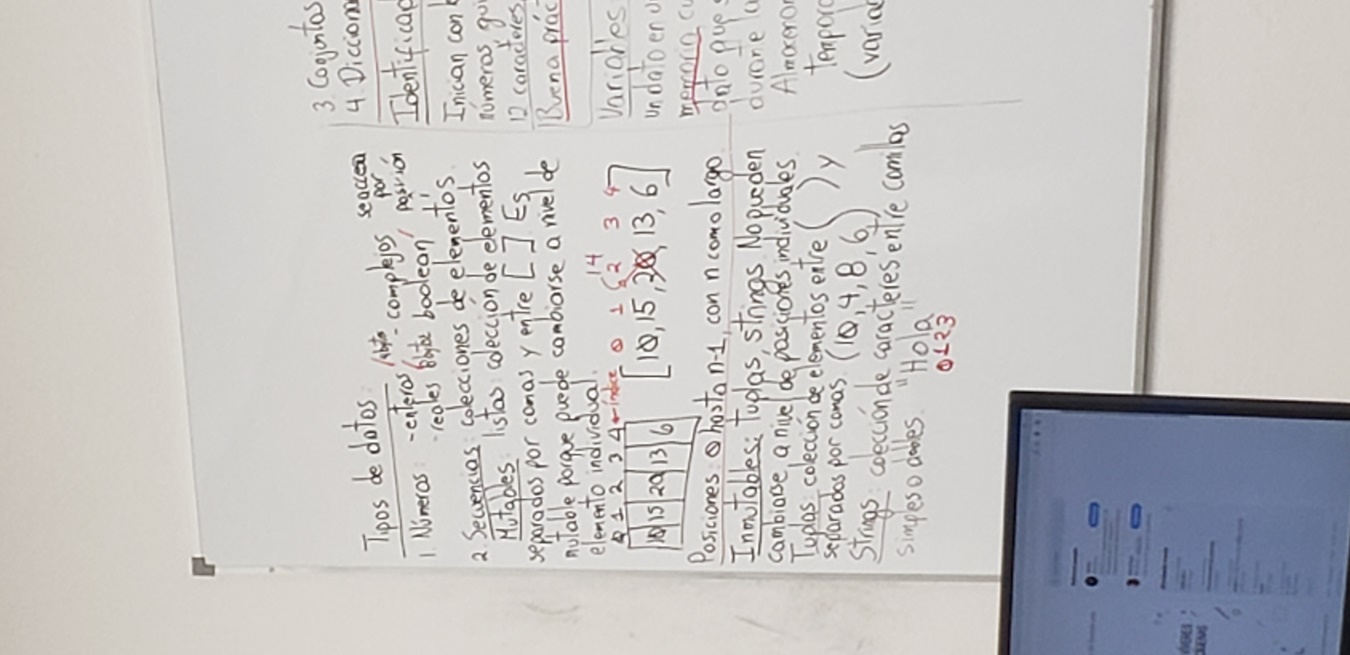 Tipos de datos:
1. Números: -enteros -complejos se accesa
-reales byte boolean por posición
2. Secuencias: colecciones de elementos.
Mutables: listas: colección de elementos
separados por comas y entre [ ] Es
mutable porque puede cambiarse a nivel de
elemento individual.
14
0 1 2 3 4 ←índice 0 1 2 3 4
10 15 20 13 6 [10, 15, 20, 13, 6]
Posiciones: 0 hasta n-1, con n como largo.
Inmutables: tuplas, strings. No pueden
cambiarse a nivel de posiciones individuales.
Tuplas: colección de elementos entre ( ) y
separados por comas. (10, 4, 8, 6)
Strings: colección de caracteres entre comillas
simples o dobles. "Hola"
0123
3. Conjuntos
4. Diccion
Identificad
Inician con
números, gui
12 caracteres
Buena prác
Variables
un dato en u
memoria cu
dato que
durante la
Almacenar
tempor
(varia